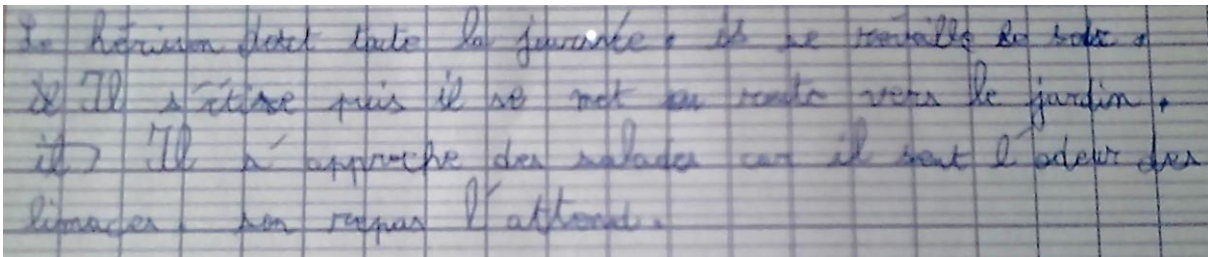 Le hérisson dort toute la journée. il se réveille le soir.
Il s'étire puis il se met en route vers le jardin.
Il s'approche des salades car il sent l'odeur des
limaces, son repas l'attend.